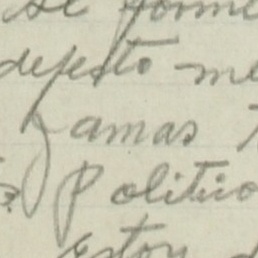 se forme
defecto me
Jamas
Politico
Estoy